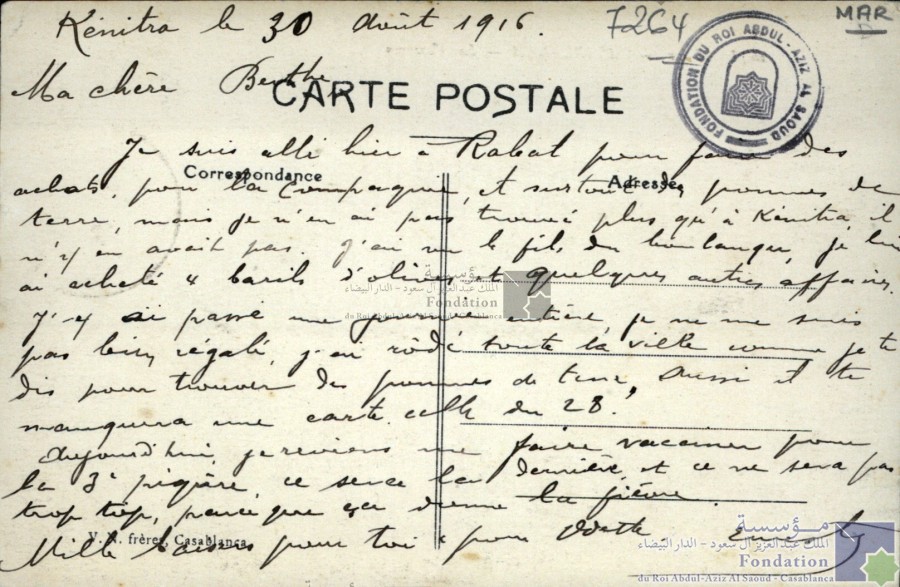 Kénitra le 30 Août 1916.
7264
MAR
FONDATION DU ROI ABDUL-AZIZ AL SAOUD
Ma chère Berthe
CARTE POSTALE
Je suis allé hier à Rabat pour faire des
Correspondance
Adresse
achats, pour la compagnie, et surtout des pommes de
terre, mais je n'en ai pas trouvé plus qu'à Kénitra, il
n'y en avait pas. J'ai vu le fils du boulanger, je lui
ai acheté 4 barils d'olives et quelques autres affaires.
مؤسسة
الملك عبد العزيز آل سعود - الدار البيضاء
Fondation
du Roi Abdul-Aziz Al Saoud - Casablanca
J'y ai passé une journée entière, je ne me suis
pas bien régalé, j'ai rôdé toute la ville comme je te
dis pour trouver des pommes de terre. Aussi il te
manquera une carte celle du 28.
Aujourd'hui, je reviens me faire vacciner pour
la 3e piqûre, ce sera la dernière et ce ne sera pas
trop tôt, parce que ça donne la fièvre
V. S. frères, Casablanca
Mille baisers pour toi & pour Odette
مؤسسة
الملك عبد العزيز آل سعود - الدار البيضاء
Fondation
du Roi Abdul-Aziz Al Saoud - Casablanca